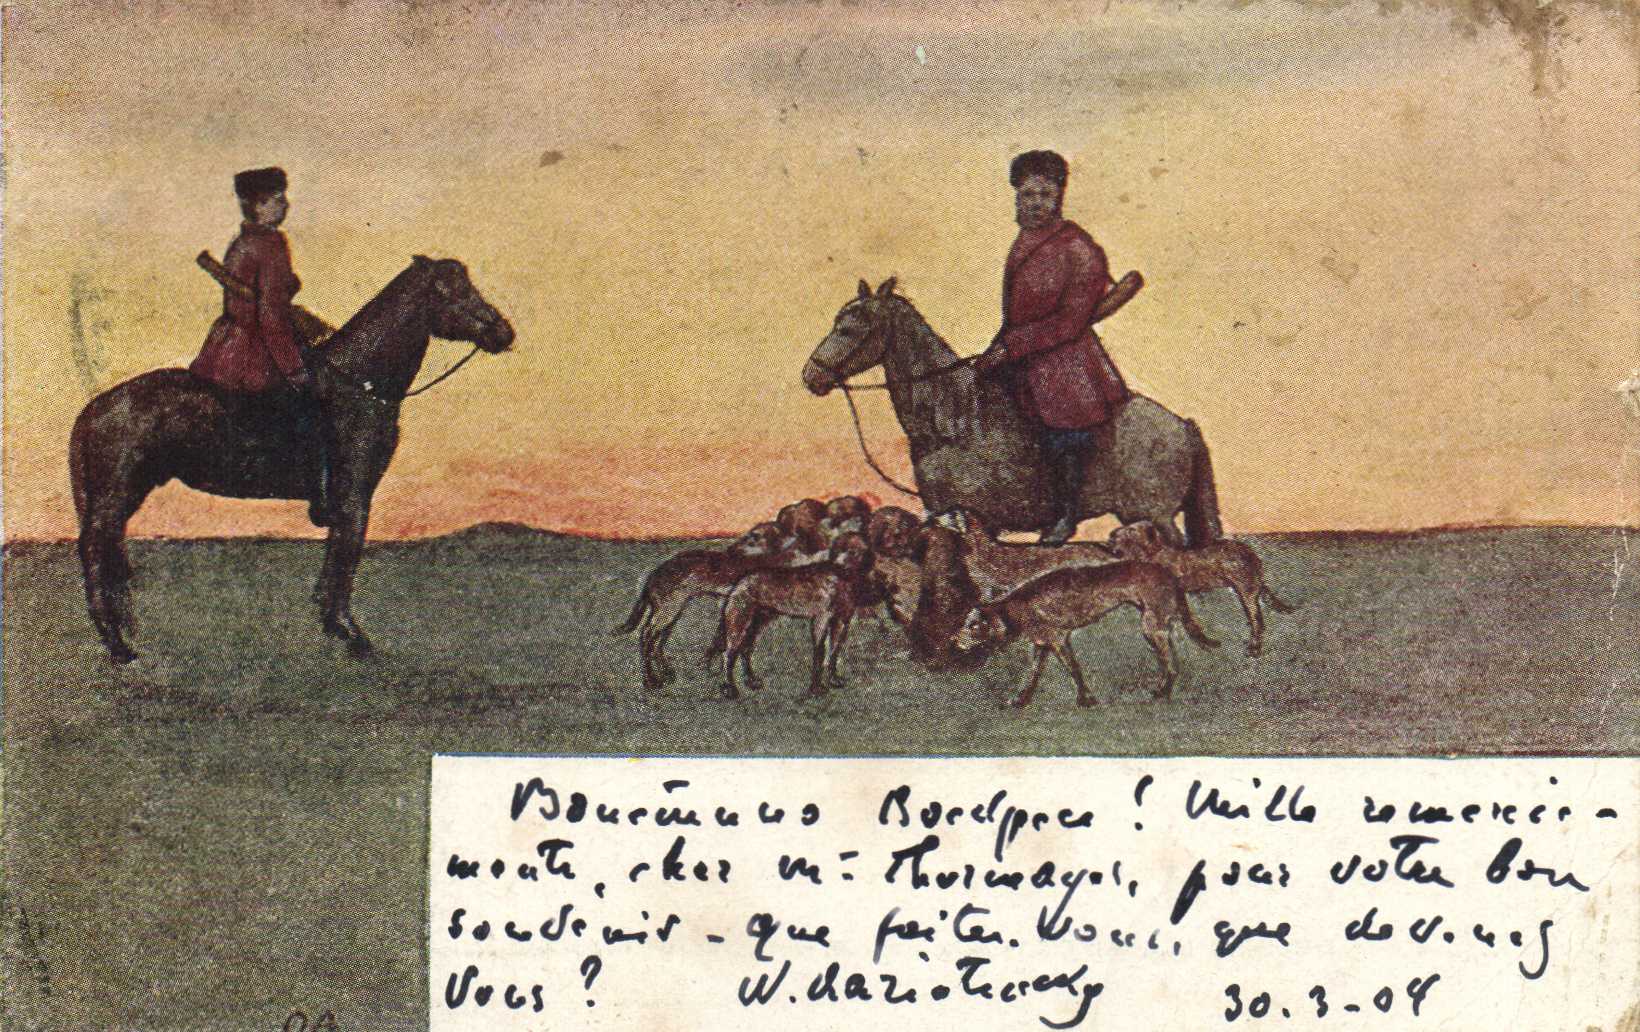 Воистинно Воскресе! Mille remercie-
ments, cher Mr. Thormeyer, pour votre bon
souvenir - que faites-vous, que devenez
vous? W. 30.3-04